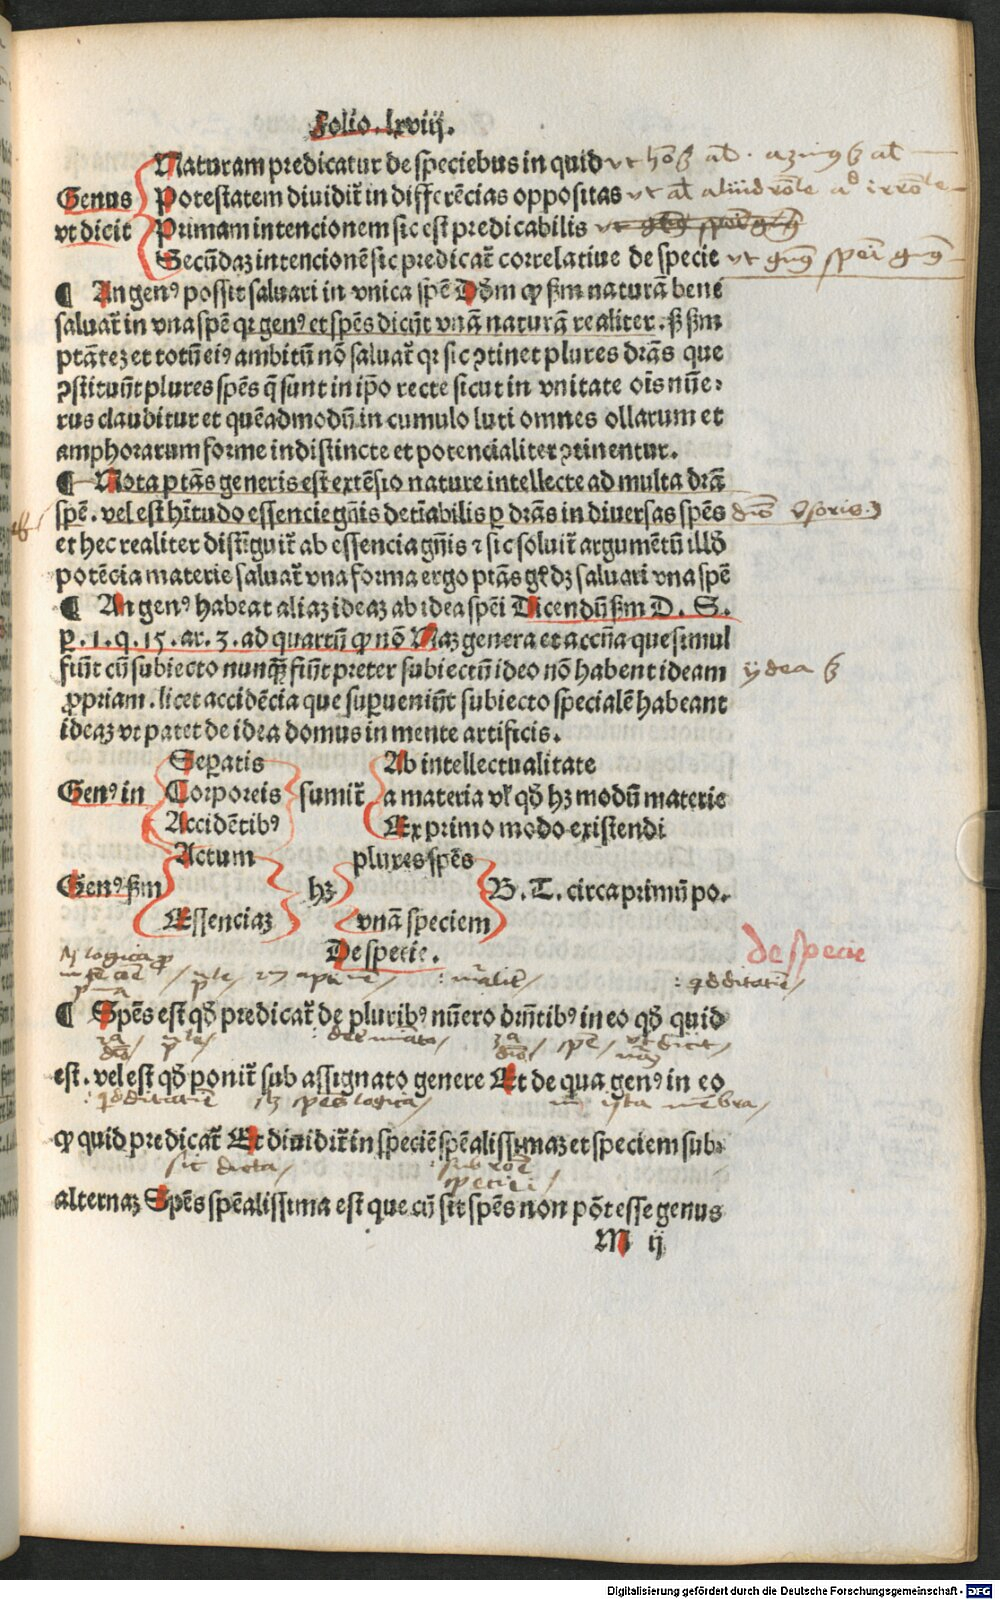 Folio. lxviij.
Naturam predicatur de speciebus in quid
Genus Potestatem diuidit᷑ in differēcias oppositas vt
vt dicit Primam intencionem sic est predicabilis
Secūdaꝫ intencionē sic predicat᷑ correlatiue de specie vt
¶ An genꝰ possit saluari in vnica spē Dōm ꝙ ẜm naturā bene
saluat᷑ in vna spē qꝛ genꝰ et spēs dicūt vnā naturā realiter. ẜꝫ ẜm
ptātēꝫ et totū eiꝰ ambitū nō saluat᷑ qꝛ sic ꝯtinet plures dr̄as que
ꝯstituūt plures spēs q̄ sunt in ip̄o recte sicut in vnitate oīs nūe⸗
rus claubitur et quēadmodū in cumulo luti omnes ollarum et
amphorarum forme indistincte et potencialiter ꝯtinentur.
¶ Nota ptās generis est extēsio nature intellecte ad multa dr̄ā
spē. vel est hītudo essencie gn̄is det̄iabilis ꝑ dr̄as in diuersas spēs
et hec realiter distīguit᷑ ab essencia gn̄is ⁊ sic soluit᷑ argumētū illd̄
potēcia materie saluat᷑ vna forma ergo ptās gn̄is dꝫ saluari vna spē
¶ An genꝰ habeat aliaꝫ ideaꝫ ab idea spēi Dicendū ẜm D. S.
ꝑ. 1. q. 15. ar. 3. ad quartū ꝙ nō Naꝫ genera et accn̄a que simul
fiūt cū subiecto nunꝙ̄ fiūt preter subiectū ideo nō habent ideam ydea
ꝓpriam. licet accidēcia que suꝑueniūt subiecto specialē habeant
ideaꝫ vt patet de idea domus in mente artificis.
Seꝑatis Ab intellectualitate
Genꝰ in Corporeis sumit᷑ a materia vl̓ qd̄ hꝫ modū materie
Accidētibꝰ Ex primo modo existendi
Actum plures spēs
Genꝰ ẜm hꝫ B. T. circa primū po.
Essenciaꝫ vnā speciem
De specie. de specie
¶ Spēs est qd̄ predicat᷑ de pluribꝰ nūero dr̄ntibꝰ in eo qd̄ quid
est. vel est qd̄ ponit᷑ sub assignato genere Et de qua genꝰ in eo
ꝙ quid predicat᷑ Et diuidit᷑ in speciē spēalissimaꝫ et speciem sub⸗
sic dicta
alternaꝫ Spēs spēalissima est que cū sit spēs non pōt esse genus
M ij
Digitalisierung gefördert durch die Deutsche Forschungsgemeinschaft - DFG